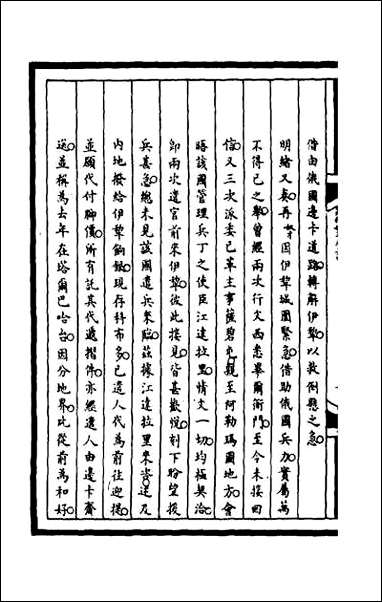 借由俄國邊卡道路轉解伊犂以救倒懸之急
明緒又奏再奴才因伊犂城圍緊急借助俄國兵力實屬萬
不得已之舉曾經兩次行文西悉畢爾衙門至今未接回
信又三次派委已革主事薩碧屯親至阿勒瑪圖地方會
晤該國管理兵丁之使臣江達拉里情文一切均極契洽
即兩次遣官前來伊犂彼此接見皆甚歡悅刻下盼望援
兵甚急總未見該國遣兵來臨茲據江達拉里來咨送及
內地撥給伊犂餉銀現存科布多已遣人代為前往迎提
並願代付腳價所有託其代遞摺件亦經遣人由邊卡齎
送並稱為去年在塔爾巴哈台因分地界比從前為和好